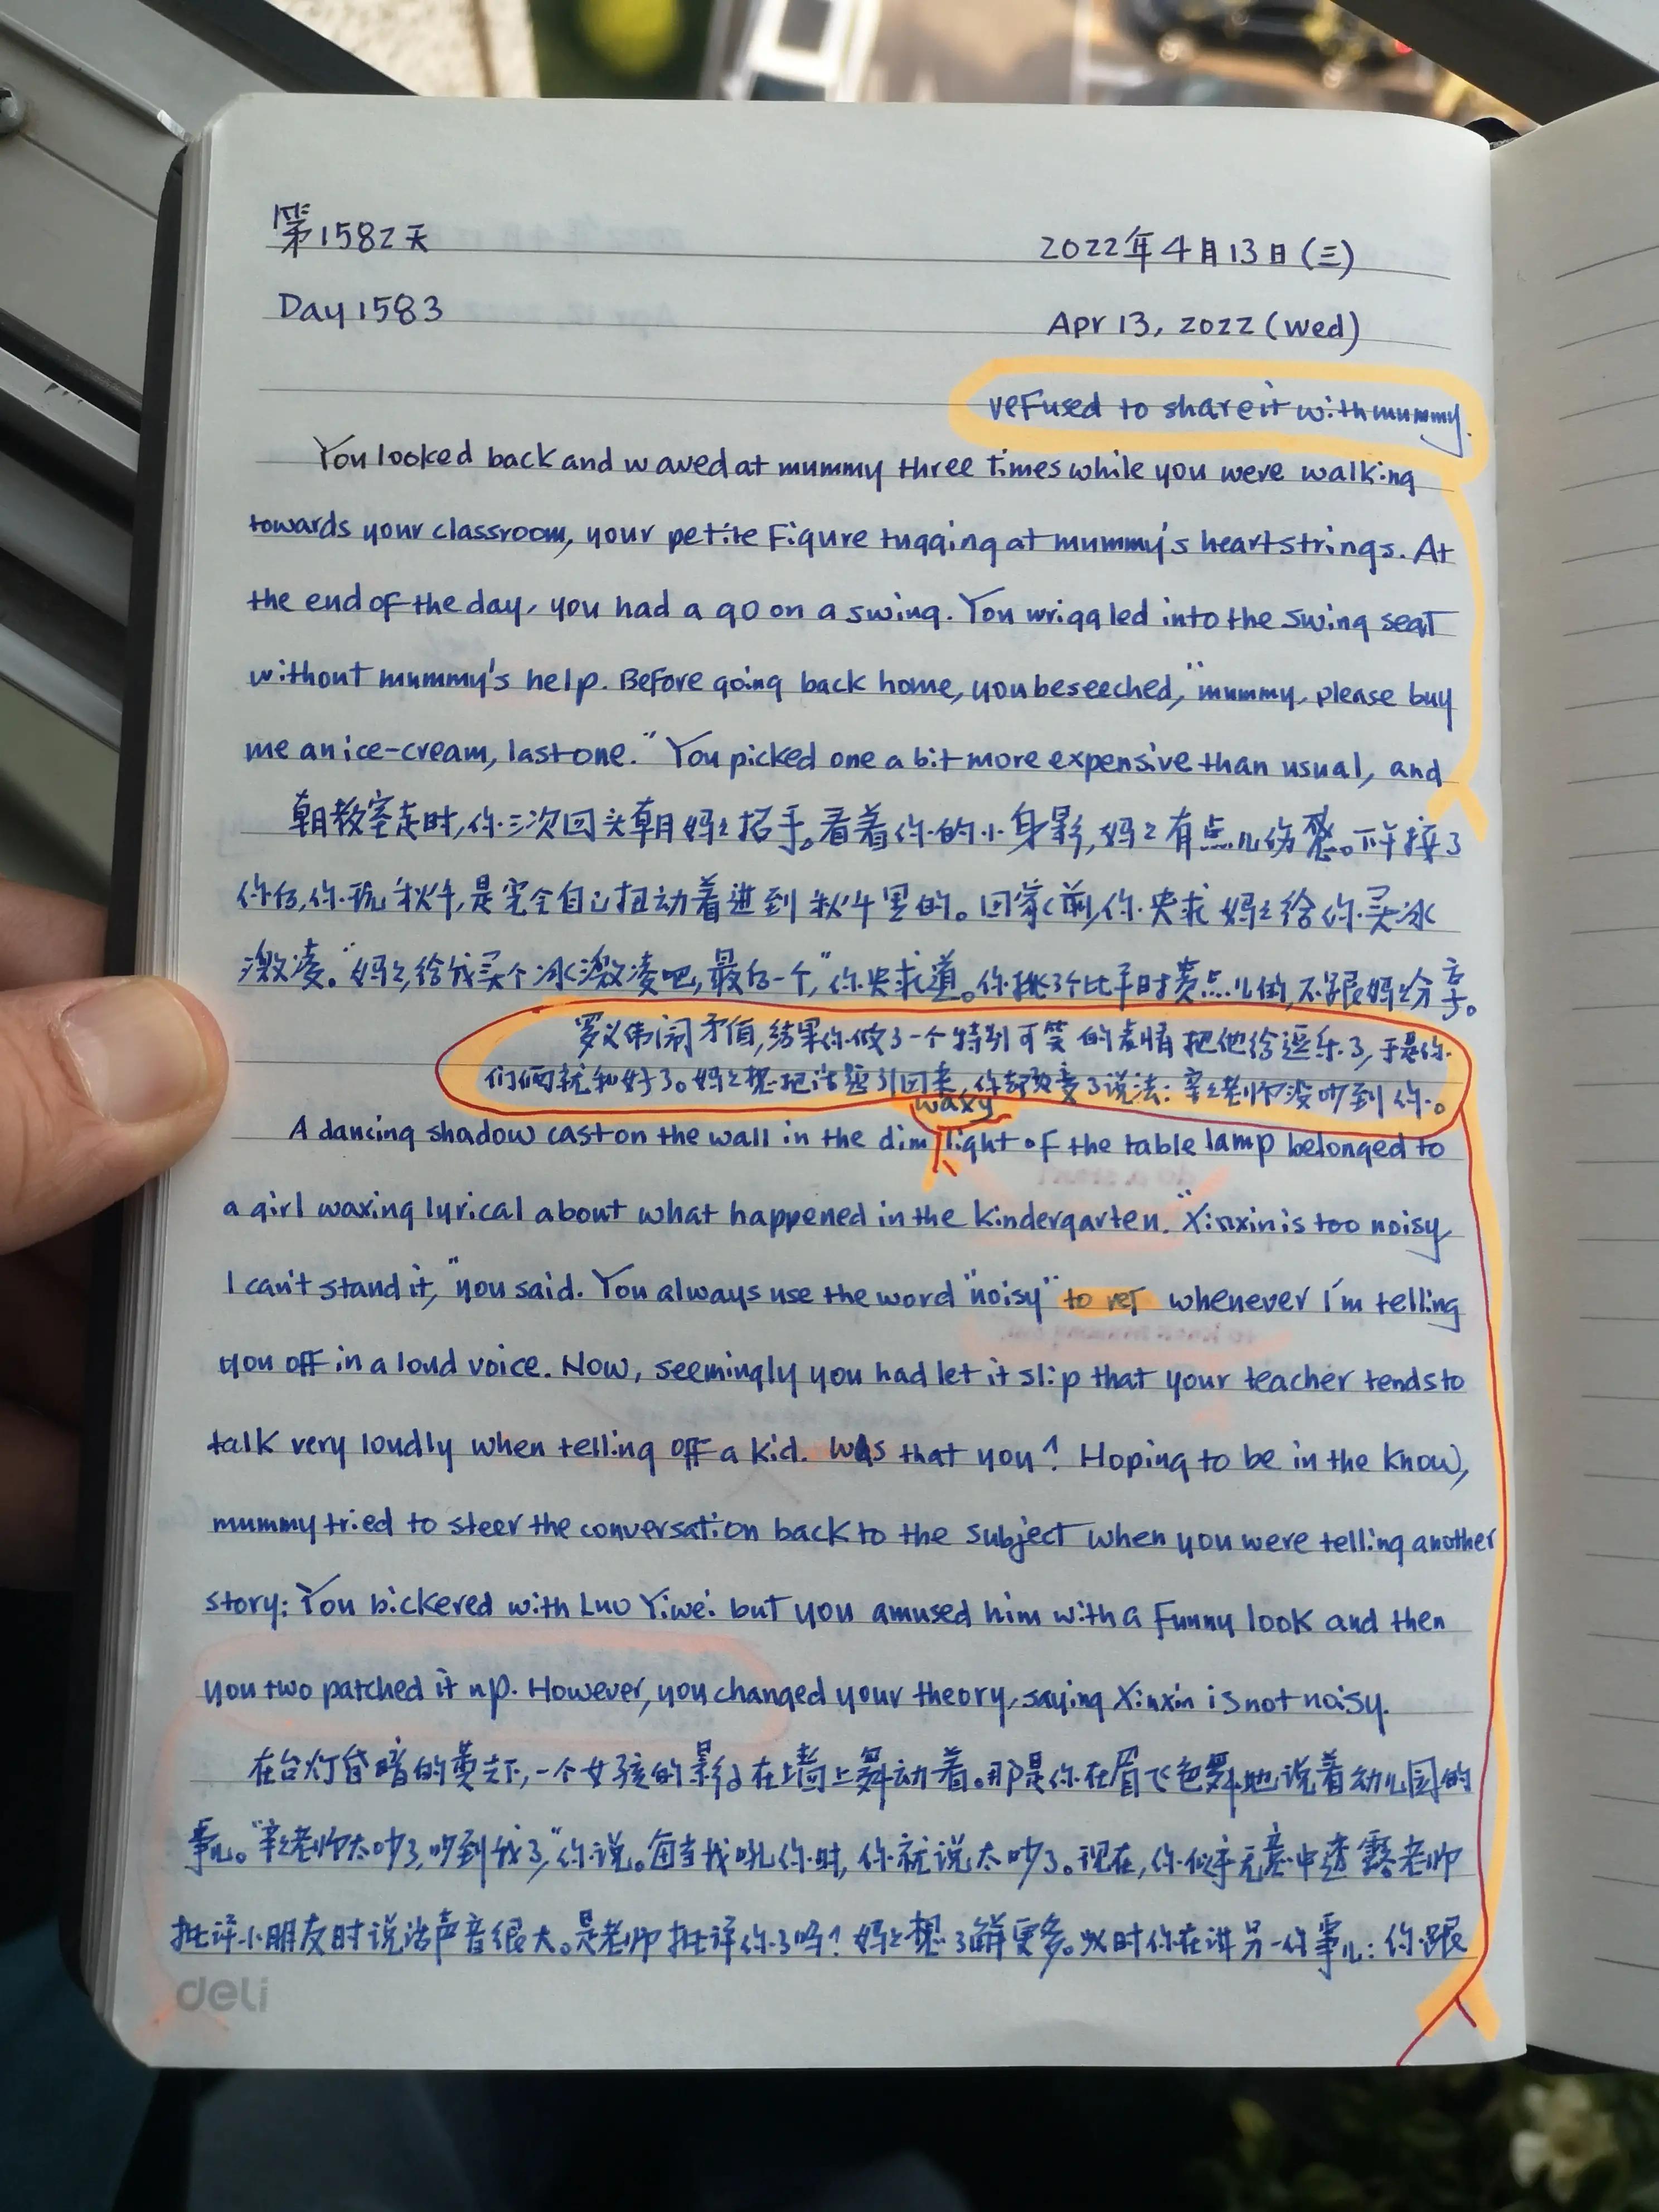 第1582天
2022年4月13日(三)
Day 1583
Apr 13, 2022 (Wed)
refused to share it with mummy.
You looked back and waved at mummy three times while you were walking
towards your classroom, your petite figure tugging at mummy's heartstrings. At
the end of the day, you had a go on a swing. You wriggled into the swing seat
without mummy's help. Before going back home, you beseeched, "mummy, please buy
me an ice-cream, last one." You picked one a bit more expensive than usual, and
朝教室走时,你三次回头朝妈妈招手。看着你的小身影,妈妈有点儿伤感。下午接了
你后,你玩秋千,是完全自己扭动着进到秋千里的。回家前,你央求妈妈给你买冰
激凌。"妈妈,给我买个冰激凌吧,最后一个,"你央求道。你挑了个比平时贵点儿的,不跟妈妈分享。
罗义伟闹矛盾,结果你做了一个特别可笑的表情把他给逗乐了,于是你
们俩就和好了。妈妈想把话题引回来,你却改变了说法:辛辛老师没吵到你。
waxy
A dancing shadow cast on the wall in the dim light of the table lamp belonged to
a girl waxing lyrical about what happened in the kindergarten. "Xinxin is too noisy
I can't stand it," you said. You always use the word "noisy" to ref whenever I'm telling
you off in a loud voice. Now, seemingly you had let it slip that your teacher tends to
talk very loudly when telling off a kid. Was that you? Hoping to be in the know,
mummy tried to steer the conversation back to the subject when you were telling another
story: You bickered with Luo Yiwei but you amused him with a funny look and then
you two patched it up. However, you changed your theory, saying Xinxin is not noisy.
在台灯昏暗的黄光下,一个女孩的影子在墙上舞动着。那是你在眉飞色舞地说着幼儿园的
事儿。"辛辛老师太吵了,吵到我了,"你说。每当我吼你时,你就说太吵了。现在,你似乎无意中透露老师
批评小朋友时说话声音很大。是老师批评你了吗?妈妈想了解更多。此时你在讲另一件事儿:你跟
deli